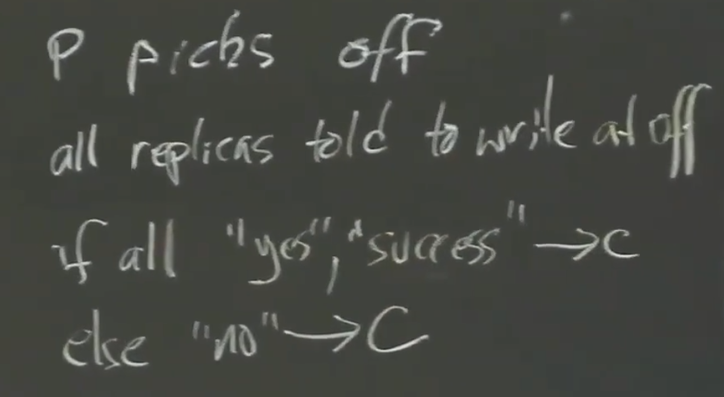 P picks off
all replicas told to write at off
if all "yes", "success" → c
else "no" → C